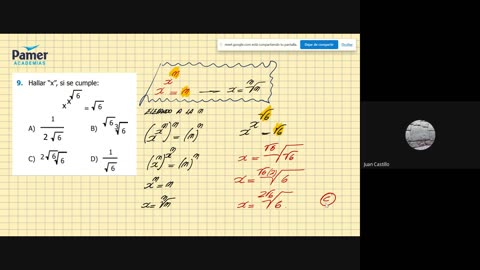 meet.google.com está compartiendo tu pantalla.
Dejar de compartir
Ocultar
Pamer
ACADEMIAS
9. Hallar "x", si se cumple:
x^x^√6 = √6
A) 1/(2√6)
B) ^√6√(∛6)
C) ^2√6√6
D) 1/√6
x^x^m = m — x = ^m√m
ELEVADO A LA m
(x^x^m)^m = (m)^m
(x^m)^x^m = (m)^m
x^m = m
x = ^m√m
x^x^√6 = √6
x = ^√6√(√6)
x = ^√6(2)√6
x = ^2√6√6
C
Juan Castillo